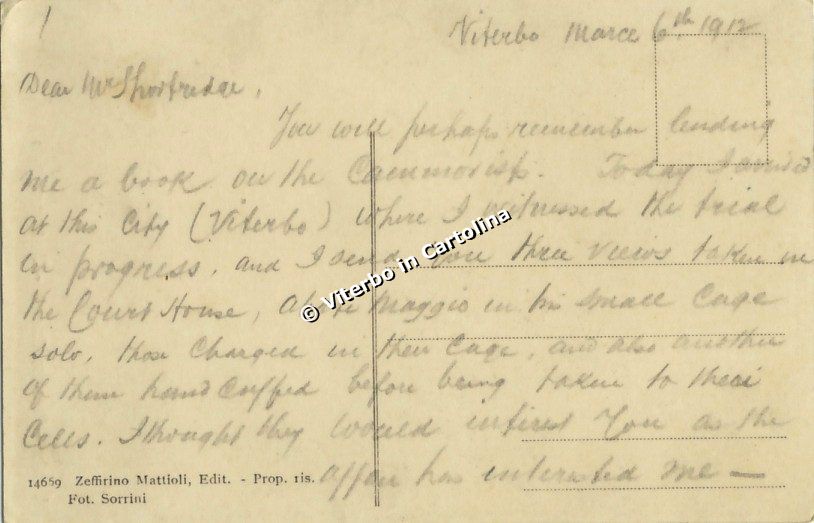 Viterbo March 6th 1912
Dear Mr Shortridge,
You will perhaps remember lending
me a book on the Cammorists. Today I arrived
at this City (Viterbo) where I witnessed the trial
in progress, and I send you three views taken in
the Court House, Maggio in his small Cage
solo, those charged in their Cage, and also another
of them hand cuffed before being taken to their
Cells. I thought they would interest You as the
affair has interested me —
14659 Zeffirino Mattioli, Edit. - Prop. ris.
Fot. Sorrini
© Viterbo in Cartolina